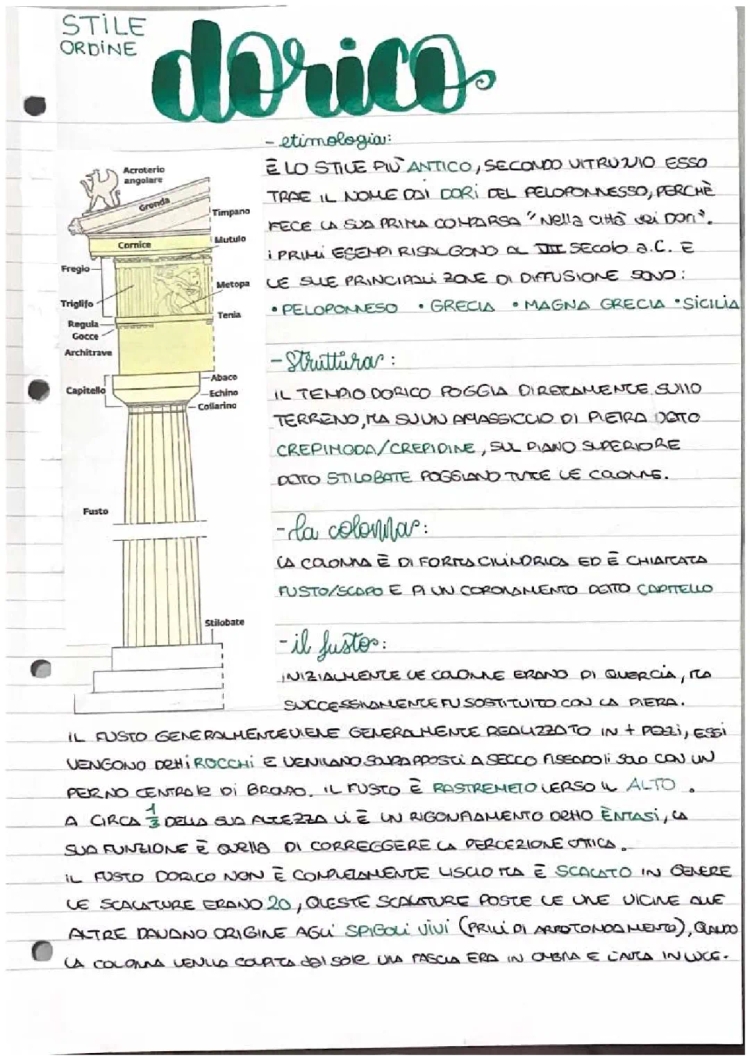 STILE
ORDINE
dorico
Acroterio
angolare
Gronda
Timpano
Cornice
Mutulo
Fregio
Metopa
Triglifo
Tenia
Regula
Gocce
Architrave
Abaco
Capitello
Echino
Collarino
Fusto
Stilobate
- etimologia:
È LO STILE PIÙ ANTICO, SECONDO VITRUVIO ESSO
TRAE IL NOME DAI DORI DEL PELOPONNESSO, PERCHÈ
FECE LA SUA PRIMA COMPARSA "Nella città dei Dori".
I PRIMI ESEMPI RISALGONO AL VII SECOLO a.C. E
LE SUE PRINCIPALI ZONE DI DIFFUSIONE SONO:
• PELOPONNESO • GRECIA • MAGNA GRECIA • SICILIA
- Struttura:
IL TEMPIO DORICO POGGIA DIRETAMENTE SULLO
TERRENO, MA SU UN AMASSICCIO DI PIETRA DETO
CREPIMODA/CREPIDINE, SUL PIANO SUPERIORE
DETO STILOBATE POGGIANO TUTTE LE COLONNE.
- la colonna:
LA COLONNA È DI FORMA CILINDRICA ED È CHIAMATA
FUSTO/SCAPO E DI UN CORONAMENTO DETTO CAPITELLO
- il fusto:
INIZIALMENTE LE COLONNE ERANO DI QUERCIA, MA
SUCCESSIVAMENTE FU SOSTITUITO CON LA PIERA.
IL FUSTO GENERALMENTE VIENE GENERALMENTE REALIZZATO IN + PEZZI, ESSI
VENGONO DETTI ROCCHI E VENIVANO SOVRAPPOSTI A SECCO FISSANDOLI SOLO CON UN
PERNO CENTRALE DI BRONZO. IL FUSTO È RASTREMETO VERSO IL ALTO.
A CIRCA 1/3 DELLA SUA ALTEZZA VI È UN RIGONFIAMENTO DETTO ÈNTASI, LA
SUA FUNZIONE È QUELLA DI CORREGGERE LA PERCEZIONE OTTICA.
IL FUSTO DORICO NON È COMPLETAMENTE LISCIO MA È SCALATO IN GENERE
LE SCALATURE ERANO 20, QUESTE SCALATURE POSTE LE UNE VICINE ALLE
ALTRE DAVANO ORIGINE AGLI SPIGOLI VIVI (PRIVI DI ARROTONDAMENTO), QUANDO
LA COLONNA VENIVA COLPITA dal SOLE UNA FASCIA ERA IN OMBRA E L'ALTRA IN LUCE.